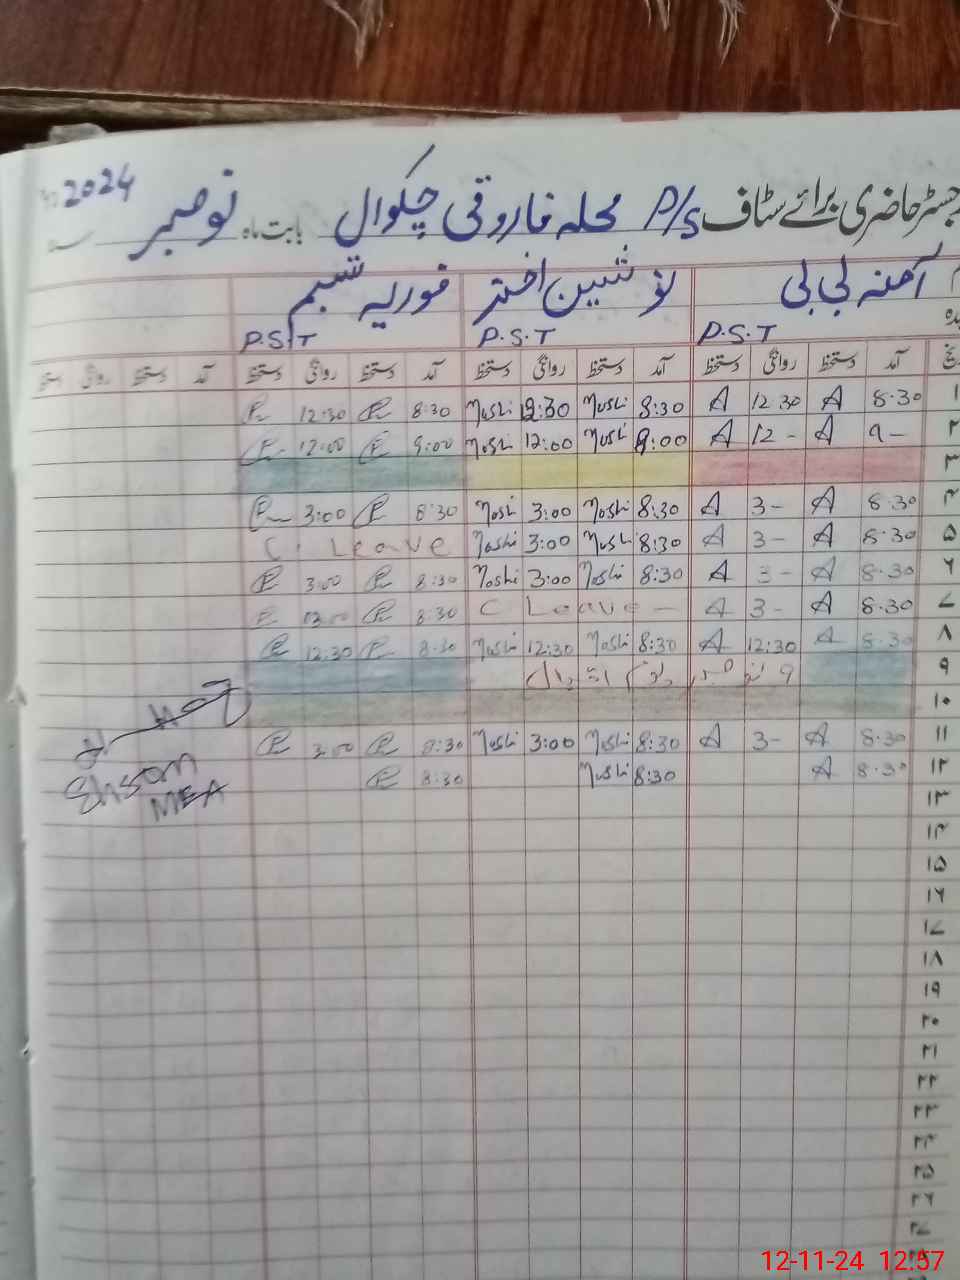 رجسٹر حاضری برائے سٹاف P/S محلہ فاروقی چکوال بابت ماہ نومبر 2024
آمنہ بی بی نوشین اختر فوزیہ تبسم
P.S.T P.S.T P.S.T
آمد دستخط روانگی دستخط آمد دستخط روانگی دستخط آمد دستخط روانگی دستخط آمد دستخط روانگی
۱ 8.30 A 12.30 A 8:30 Noshi 12:30 Noshi 8:30 12:30
۲ 9- A 12- A 9:00 Noshi 12:00 Noshi 9:00 12:00
۳
۴ 8.30 A 3- A 8:30 Noshi 3:00 Noshi 8:30 3:00
۵ 8.30 A 3- A 8:30 Noshi 3:00 Noshi C. Leave
۶ 8.30 A 3- A 8:30 Noshi 3:00 Noshi 8:30 3:00
۷ 8.30 A 3- A C Leave - 8:30
۸ 8.30 A 12:30 A 8:30 Noshi 12:30 Noshi 8:30 12:30
۹ 9 نومبر یوم اقبال
۱۰
۱۱ 8.30 A 3- A 8:30 Noshi 3:00 Noshi 8:30 3:00
۱۲ 8.30 A 8:30 Noshi 8:30
MEA
۱۳
۱۴
۱۵
۱۶
۱۷
۱۸
۱۹
۲۰
۲۱
۲۲
۲۳
۲۴
۲۵
۲۶
۲۷
۲۸
12-11-24 12:57